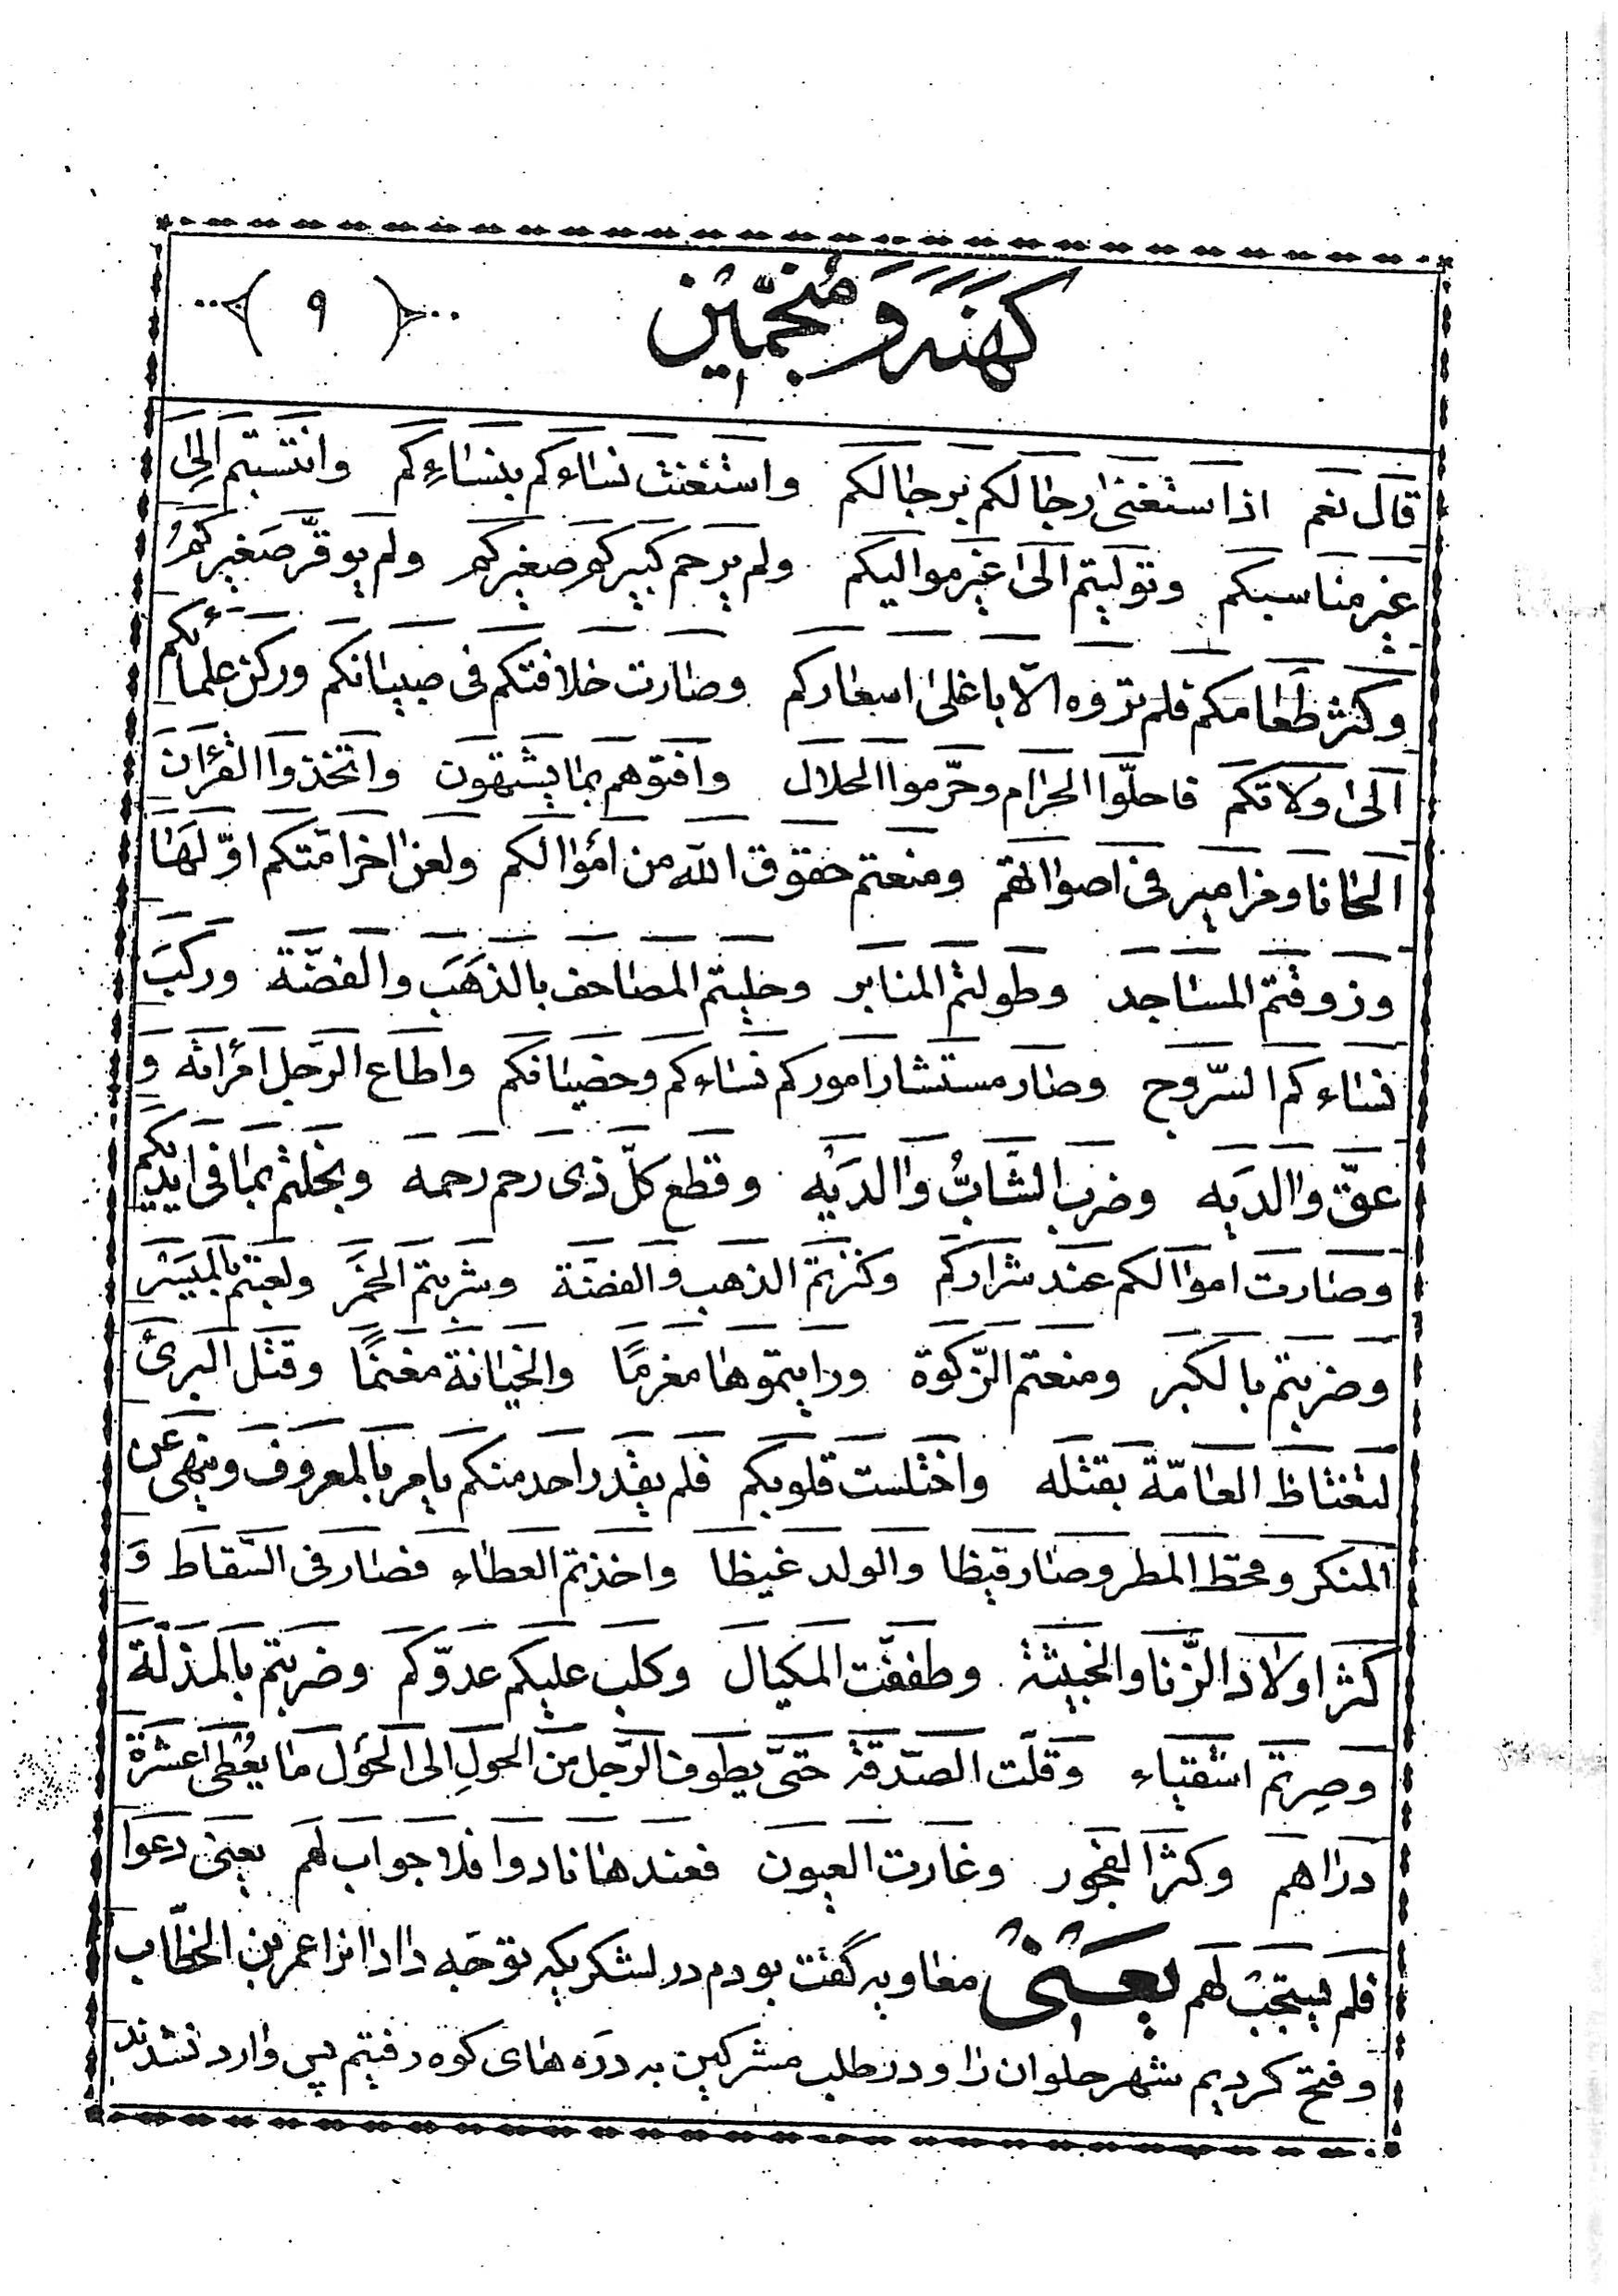 کهنه و منجمین
(۹)
قال نعم اذا استغنیٰ رجالکم برجالکم واستغنت نساءکم بنساءِکم وانتسبتم الیٰ
غیر مناسبکم وتولیتم الیٰ غیر موالیکم ولم یرحم کبیرکم صغیرکم ولم یوقّر صغیرکم
وکثر طعامکم فلم تروه الّا باغلیٰ اسعارکم وصارت خلافتکم فی صبیانکم ورکن علمائکم
الیٰ ولاتکم فاحلّوا الحرام وحرّموا الحلال وافتوهم بما یشتهون واتخذوا القرآن
الحانا ومزامیر فی اصواتهم ومنعتم حقوق الله من اموالکم ولعن اخر امتکم اوّلها
وزوقتم المساجد وطولتم المنابر وحلیتم المصاحف بالذهب والفضّة ورکبَ
نساءکم السّروج وصار مستشار امورکم نساءکم وخصیانکم واطاع الرّجل امرأته وَ
عقّ والدیه وضرب الشّابُّ والدیه وقطع کلّ ذی رحم رحمه وبخلتم بما فی ایدیکم
وصارت اموالکم عند شرارکم وکنزتم الذهب والفضّة وشربتم الخمر ولعبتم بالمیسر
وضربتم بالکبر ومنعتم الزّکوة ورایتموها مغرمًا والخیانة مغنمًا وقتل البرئ
لتغتاظ العامّة بقتله واختلست قلوبکم فلم یقدر احد منکم یامر بالمعروف وینهی عن
المنکر وقحط المطر وصار قیظا والولد غیظا واخذتم العطاء فصار فی السّقاط وَ
کثر اولاد الزّنا والخبیثة وطففت المکیال وکلب علیکم عدوّکم وضربتم بالمذلّة
وصِرتم اشقیاء وقلّت الصّدقة حتیّ یطوف الرّجل من الحولِ الی الحول ما یُعطی عشرة
دراهم وکثر الفجور وغارت العیون فعندها نادوا فلا جواب لهم یعنی دعوا
فلم یستجب لهم یعنی معاویه گفت بودم در لشکریکه توجه داد انرا عمر بن الخطّاب
و فتح کردیم شهر حلوان را و در طلب مشرکین به درّه‌های کوه رفتیم پس وارد نشدند